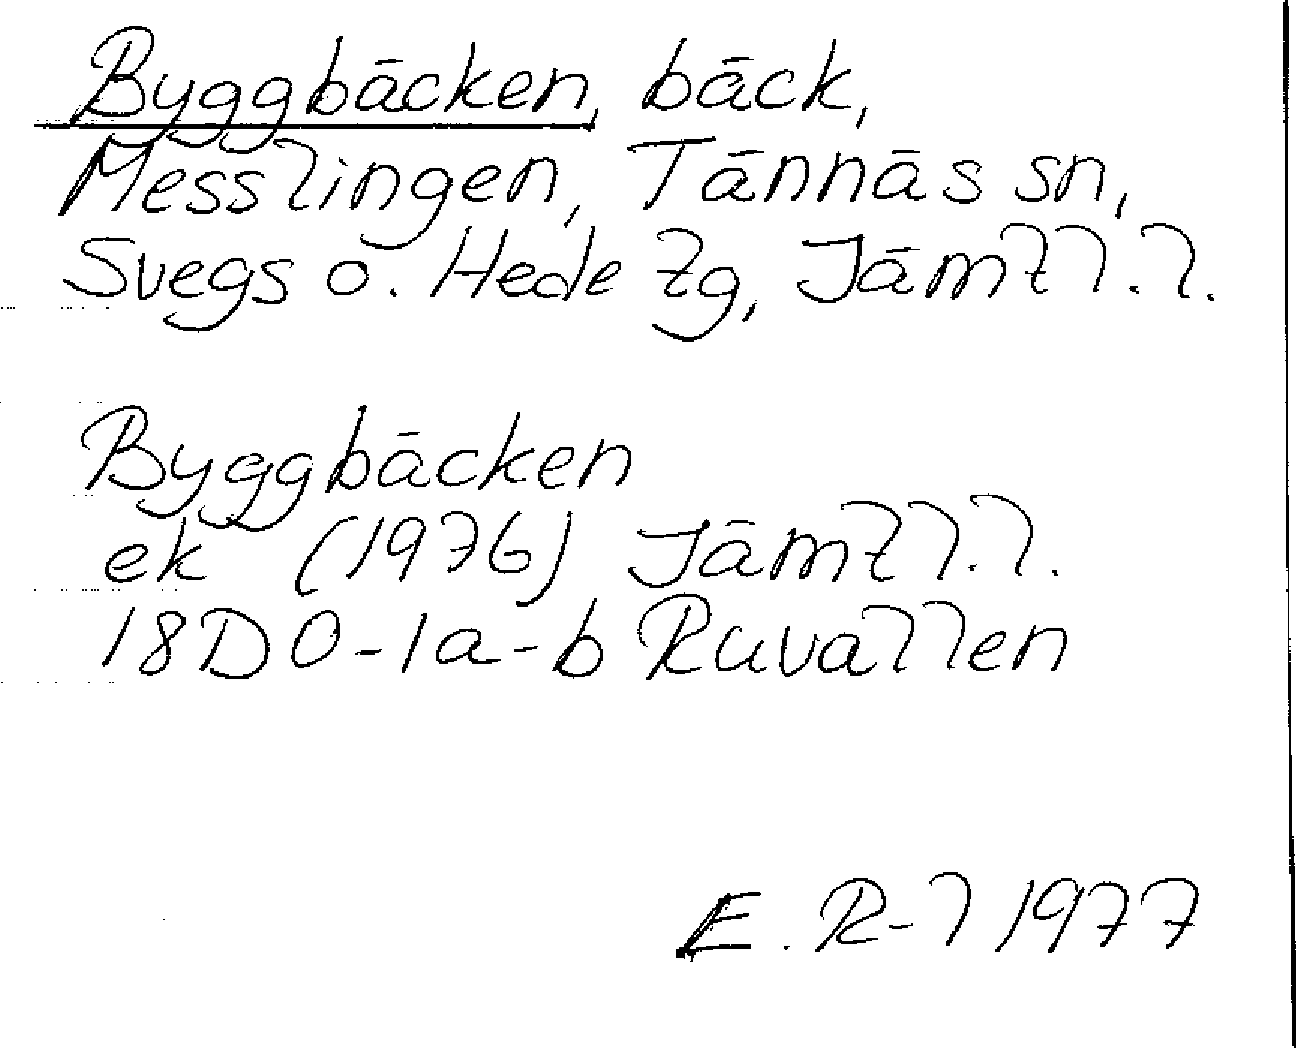 Byggbäcken, bäck,
Messlingen, Tännäs sn,
Svegs o. Hede tg, Jämtl.l.
Byggbäcken
ek (1976) Jämtl.l.
18D0-1a-b Ruvallen
E. R-l 1977